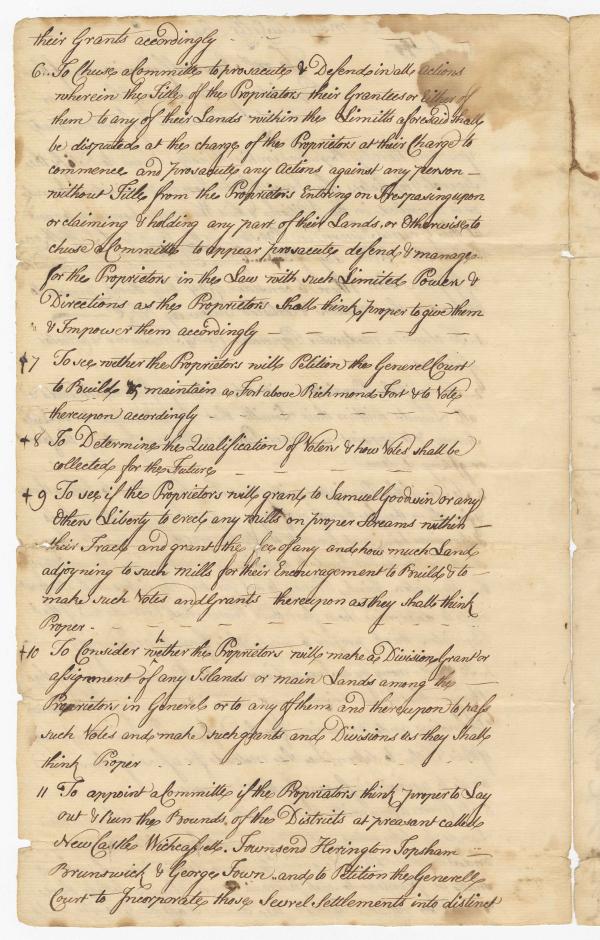 their Grants accordingly
6.. To Chuse a Committe to prosacute & Defend in all actions
wherein the Title of the Propriators their Grantees or Either of
them to any of their Lands within the Limitts aforesaid shall
be disputed at the charge of the Proprietors at their Charge to
commence and prosacute any Actions against any person
without Title from the Proprietors Entring on Trespasing upon
or claiming & holding any part of their Lands, or Otherwise to
chuse a Committe to appear prosacute defend & manage
for the Proprietors in the Law with such Limited Powers &
Directions as the Proprietors shall think proper to give them
& Impower them accordingly
+7 To see wether the Proprietors will Petition the Generel Court
to Build & maintain a Fort above Richmond Fort & to Vote
thereupon accordingly
+8 To Determine the Qualification of Voters & how Votes shall be
collected for the Future
+9 To see if the Proprietors will grant to Samuel Goodwin or any
Others Liberty to erect any mills on proper Streams within
their Tract and grant the fee of any and how much Land
adjoyning to such mills for their Encouragement to Build & to
make such Votes and Grants thereupon as they shall think
Proper
+10 To Consider whether the Proprietors will make a Division Grant or
assignment of any Islands or main Lands among the
Proprietors in Generel or to any of them and thereupon to pass
such Votes and make such grants and Divisions as they shall
think Proper
11 To appoint a Committe if the Propriators think proper to Lay
out & Run the Bounds of the Districts at preasant called
New Castle Wichcaset Townsend Herington Topsham
Brunswick & George Town and to Petition the Generell
Court to Incorporate those Sevrel Settlements into distinct